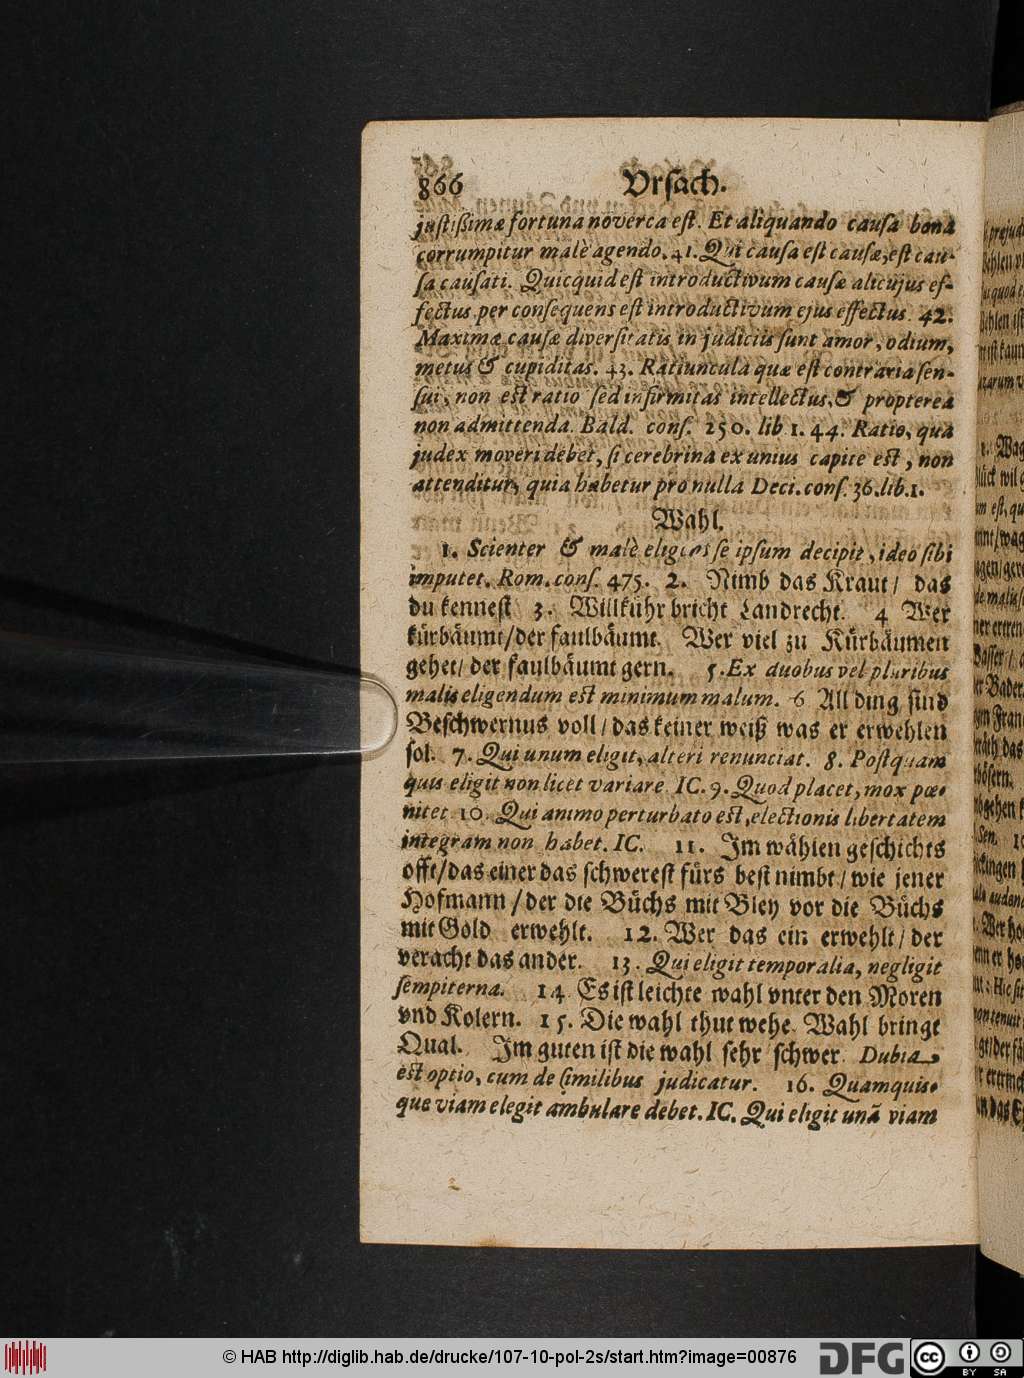 866 Vrsach.
justissimæ fortuna noverca est. Et aliquando causa bona
corrumpitur malè agendo. 41. Qui causa est causæ, est cau-
sa causati. Quicquid est introductivum causæ alicujus ef-
fectus, per consequens est introductivum ejus effectus. 42.
Maximæ causæ diversitatis in judiciis sunt amor, odium,
metus & cupiditas. 43. Ratiuncula quæ est contraria sen-
sui, non est ratio sed infirmitas intellectus, & propterea
non admittenda. Bald. cons. 250. lib 1. 44. Ratio, qua
judex moveri debet, si cerebrina ex unius capite est, non
attenditur, quia habetur pro nulla Deci. cons. 36. lib. 1.
Wahl.
1. Scienter & malè eligens se ipsum decipit, ideo sibi
imputet. Rom. cons. 475. 2. Nimb das Kraut / das
du kennest 3. Willkühr bricht Landrecht. 4 Wer
kürbäumt / der faulbäumt. Wer viel zu Kürbäumen
gehet / der faulbäumt gern. 5. Ex duobus vel pluribus
malis eligendum est minimum malum. 6 All ding sind
Beschwernus voll / das keiner weiß was er erwehlen
sol. 7. Qui unum eligit, alteri renunciat. 8. Postquam
quis eligit non licet variare IC. 9. Quod placet, mox pœ-
nitet 10. Qui animo perturbato est, electionis libertatem
integram non habet. IC. 11. Im wählen geschichts
offt / das einer das schwerest fürs best nimbt / wie jener
Hofmann / der die Büchs mit Bley vor die Büchs
mit Gold erwehlt. 12. Wer das ein erwehlt / der
veracht das ander. 13. Qui eligit temporalia, negligit
sempiterna. 14 Es ist leichte wahl vnter den Moren
vnd Kolern. 15. Die wahl thut wehe. Wahl bringt
Qual. Im guten ist die wahl sehr schwer. Dubia
est optio, cum de similibus judicatur. 16. Quamquis-
que viam elegit ambulare debet. IC. Qui eligit unã viam
© HAB http://diglib.hab.de/drucke/107-10-pol-2s/start.htm?image=00876
DFG
cc
BY SA